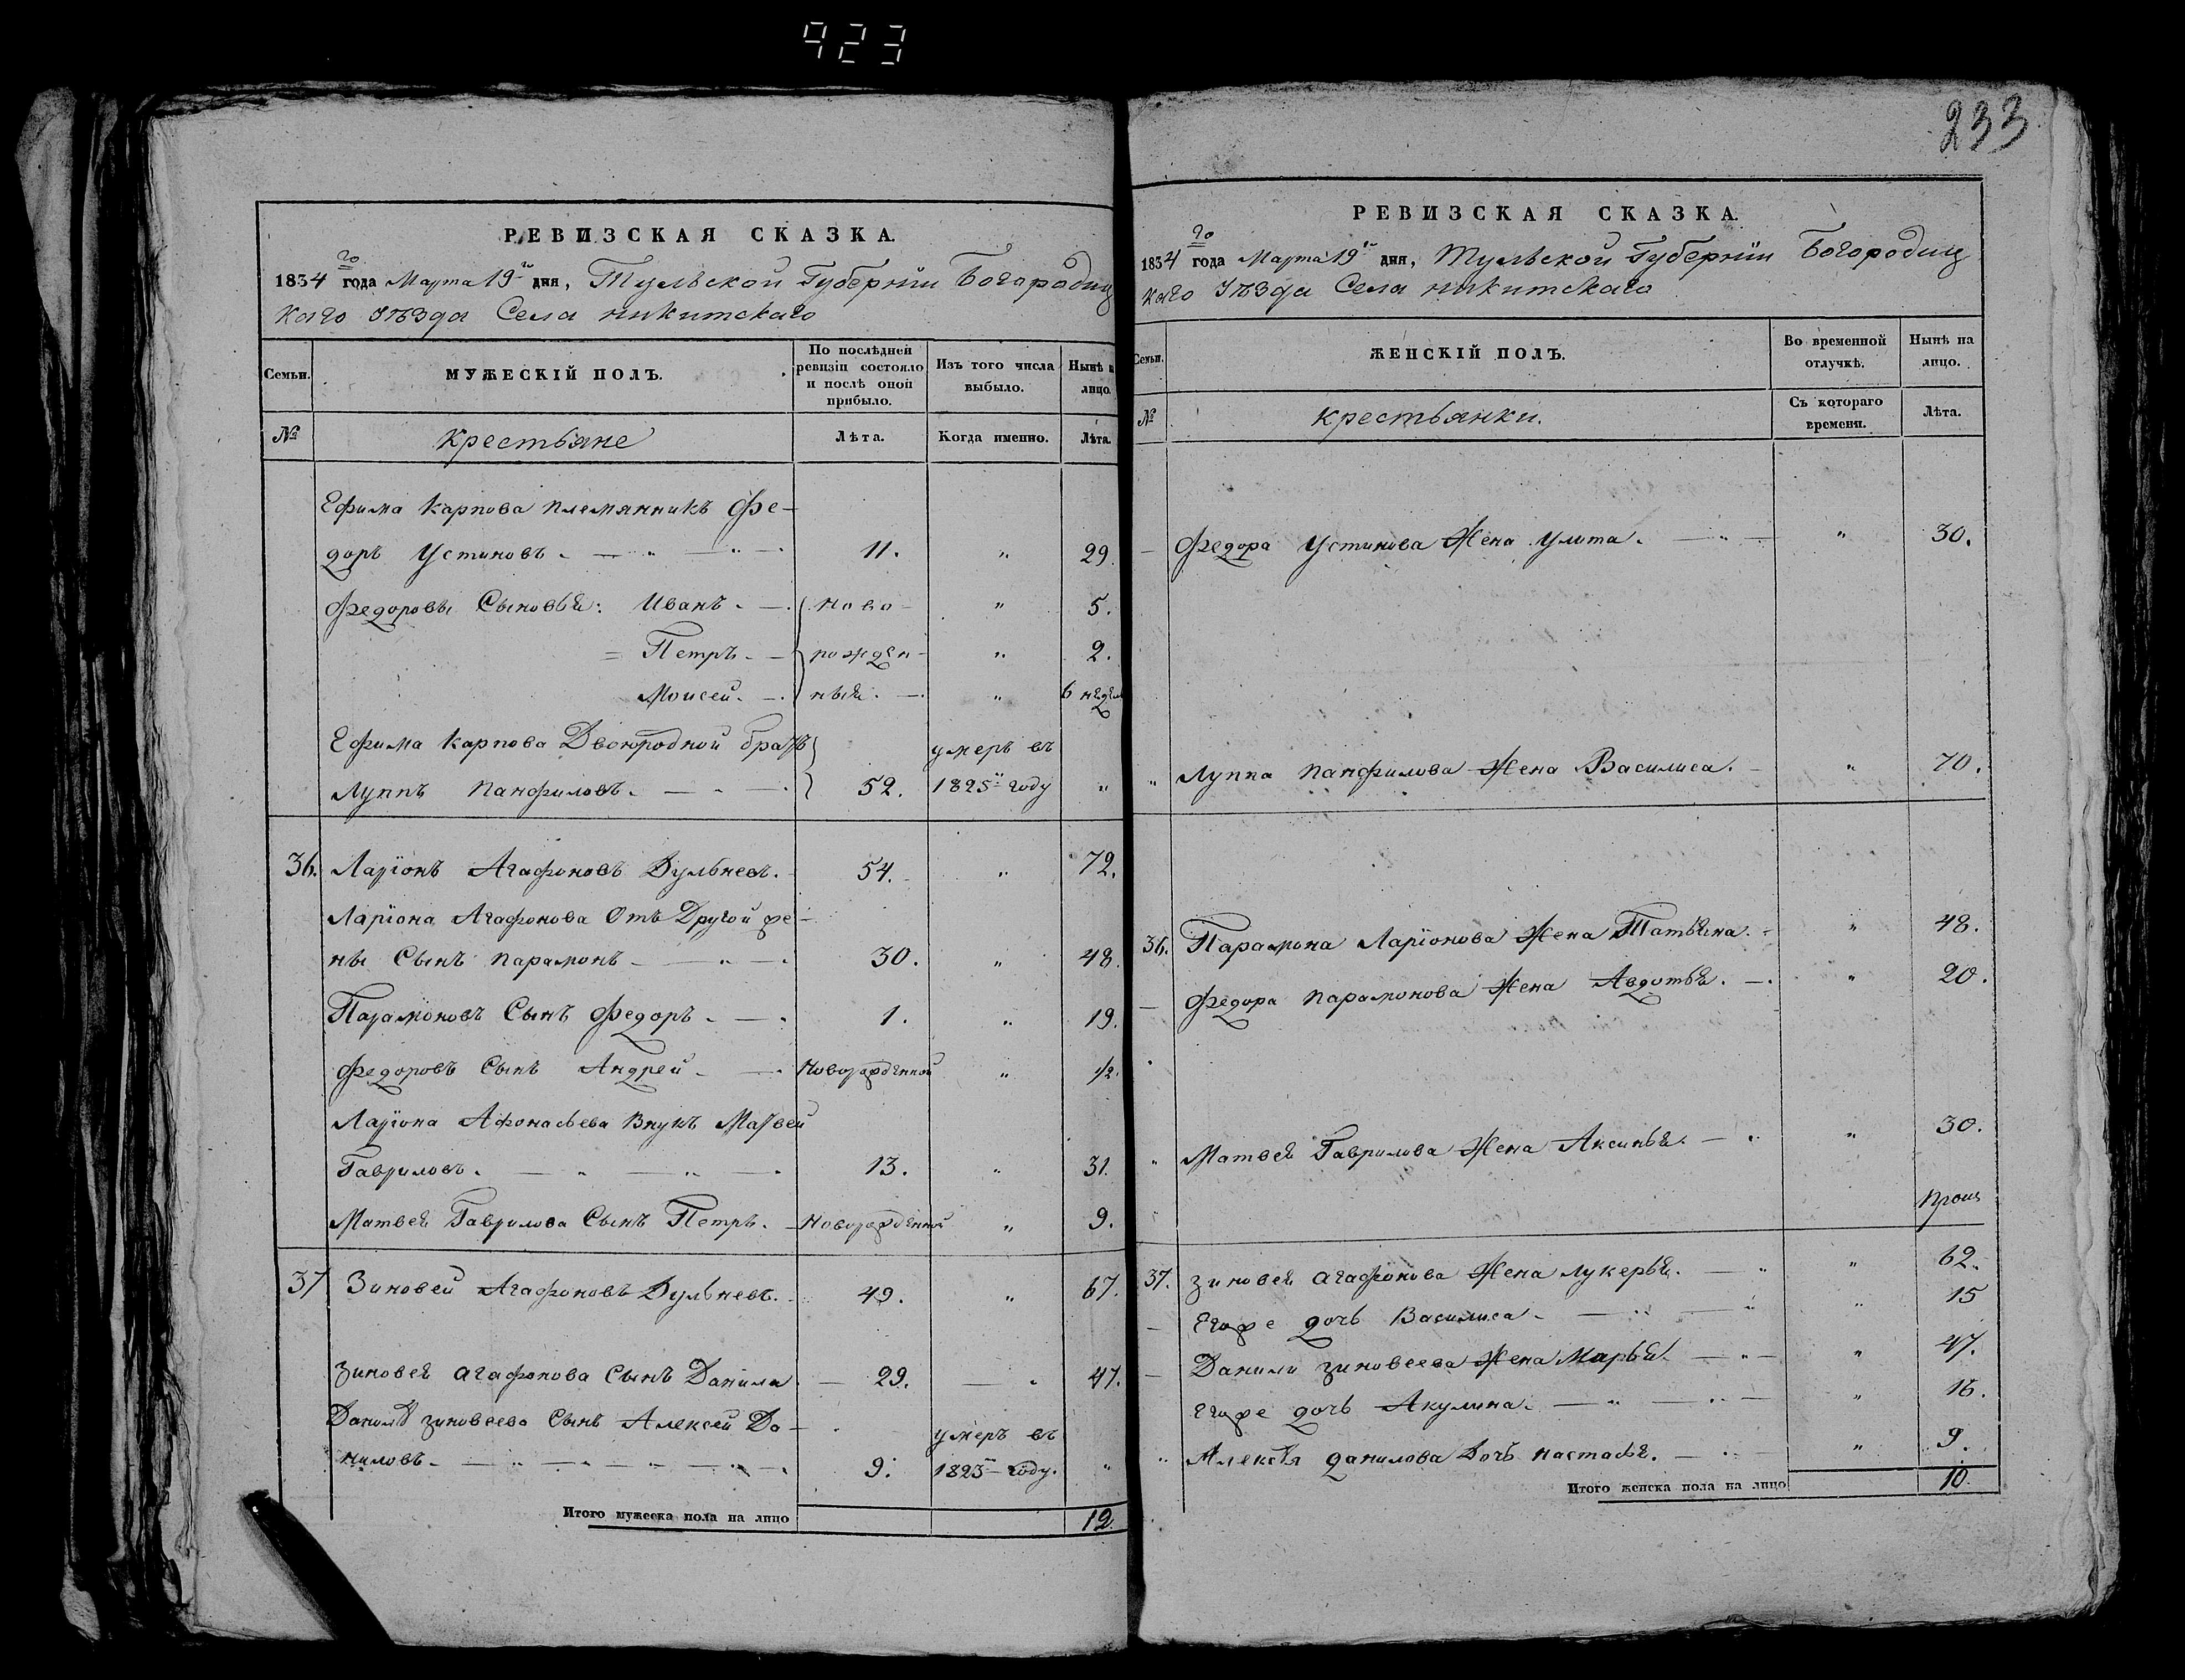 423
233
РЕВИЗСКАЯ СКАЗКА.
1834го года Марта 19го дня, Тульской Губернïи Богородиц
каго Уѣзда Села никитскаго
Семьи.
МУЖЕСКІЙ ПОЛЪ.
По послѣдней ревизіи состояло и послѣ оной прибыло.
Изъ того числа выбыло.
Нынѣ на лицо.
№
крестьяне
Лѣта.
Когда именно.
Лѣта.
Ефима Карпова племянникъ Фе-
доръ Устиновъ. 11. " 29.
Федоровы Сыновья: Иванъ. Ново- " 5.
= Петръ. рожден- " 2.
Моисей. ныя. " 6 недѣль
Ефима Карпова Двоюродной братъ умеръ въ
Луппъ Панфиловъ. 52. 1825м году "
36. Ларïонъ Агафоновъ Дульневъ. 54. " 72.
Ларïона Агафонова Отъ Другой же-
ны Сынъ Парамонъ 30. " 48.
Парамоновъ Сынъ Федоръ 1. " 19.
Федоровъ Сынъ Андрей Новорожденной " 1/2.
Ларïона Афонасьева Внукъ Матвей
Гавриловъ. 13. " 31.
Матвея Гаврилова Сынъ Петръ. Новорожденной " 9.
37 Зиновей Агафоновъ Дульневъ. 49. " 67.
Зиновея Агафонова Сынъ Данила 29. 47.
Данилы Зиновеева Сынъ Алексей Да- умеръ въ
ниловъ 9. 1823м году. "
Итого мужеска пола на лицо 12.
РЕВИЗСКАЯ СКАЗКА.
1834го года Марта 19го дня, Тульской Губернïи Богородиц
каго Уѣзда Села никитскаго
Семьи.
ЖЕНСКІЙ ПОЛЪ.
Во временной отлучкѣ.
Нынѣ на лицо.
№
крестьянки.
Съ котораго времени.
Лѣта.
Федора Устинова Жена Улита. " 30.
" Луппа Панфилова Жена Василиса. " 70.
36. Парамона Ларïонова Жена Татьяна. " 48.
Федора Парамонова Жена Авдотья. " 20.
" Матвея Гаврилова Жена Аксинья. " 30.
37. Зиновея Агафонова Жена Лукерья. " 62.
Егоже дочь Василиса " 15
Данилы Зиновеева Жена Марья. " 47.
Егоже дочь Акулина. " 16.
" Алексѣя Данилова Дочь Настасья. " 9.
Итого женска пола на лицо 10.